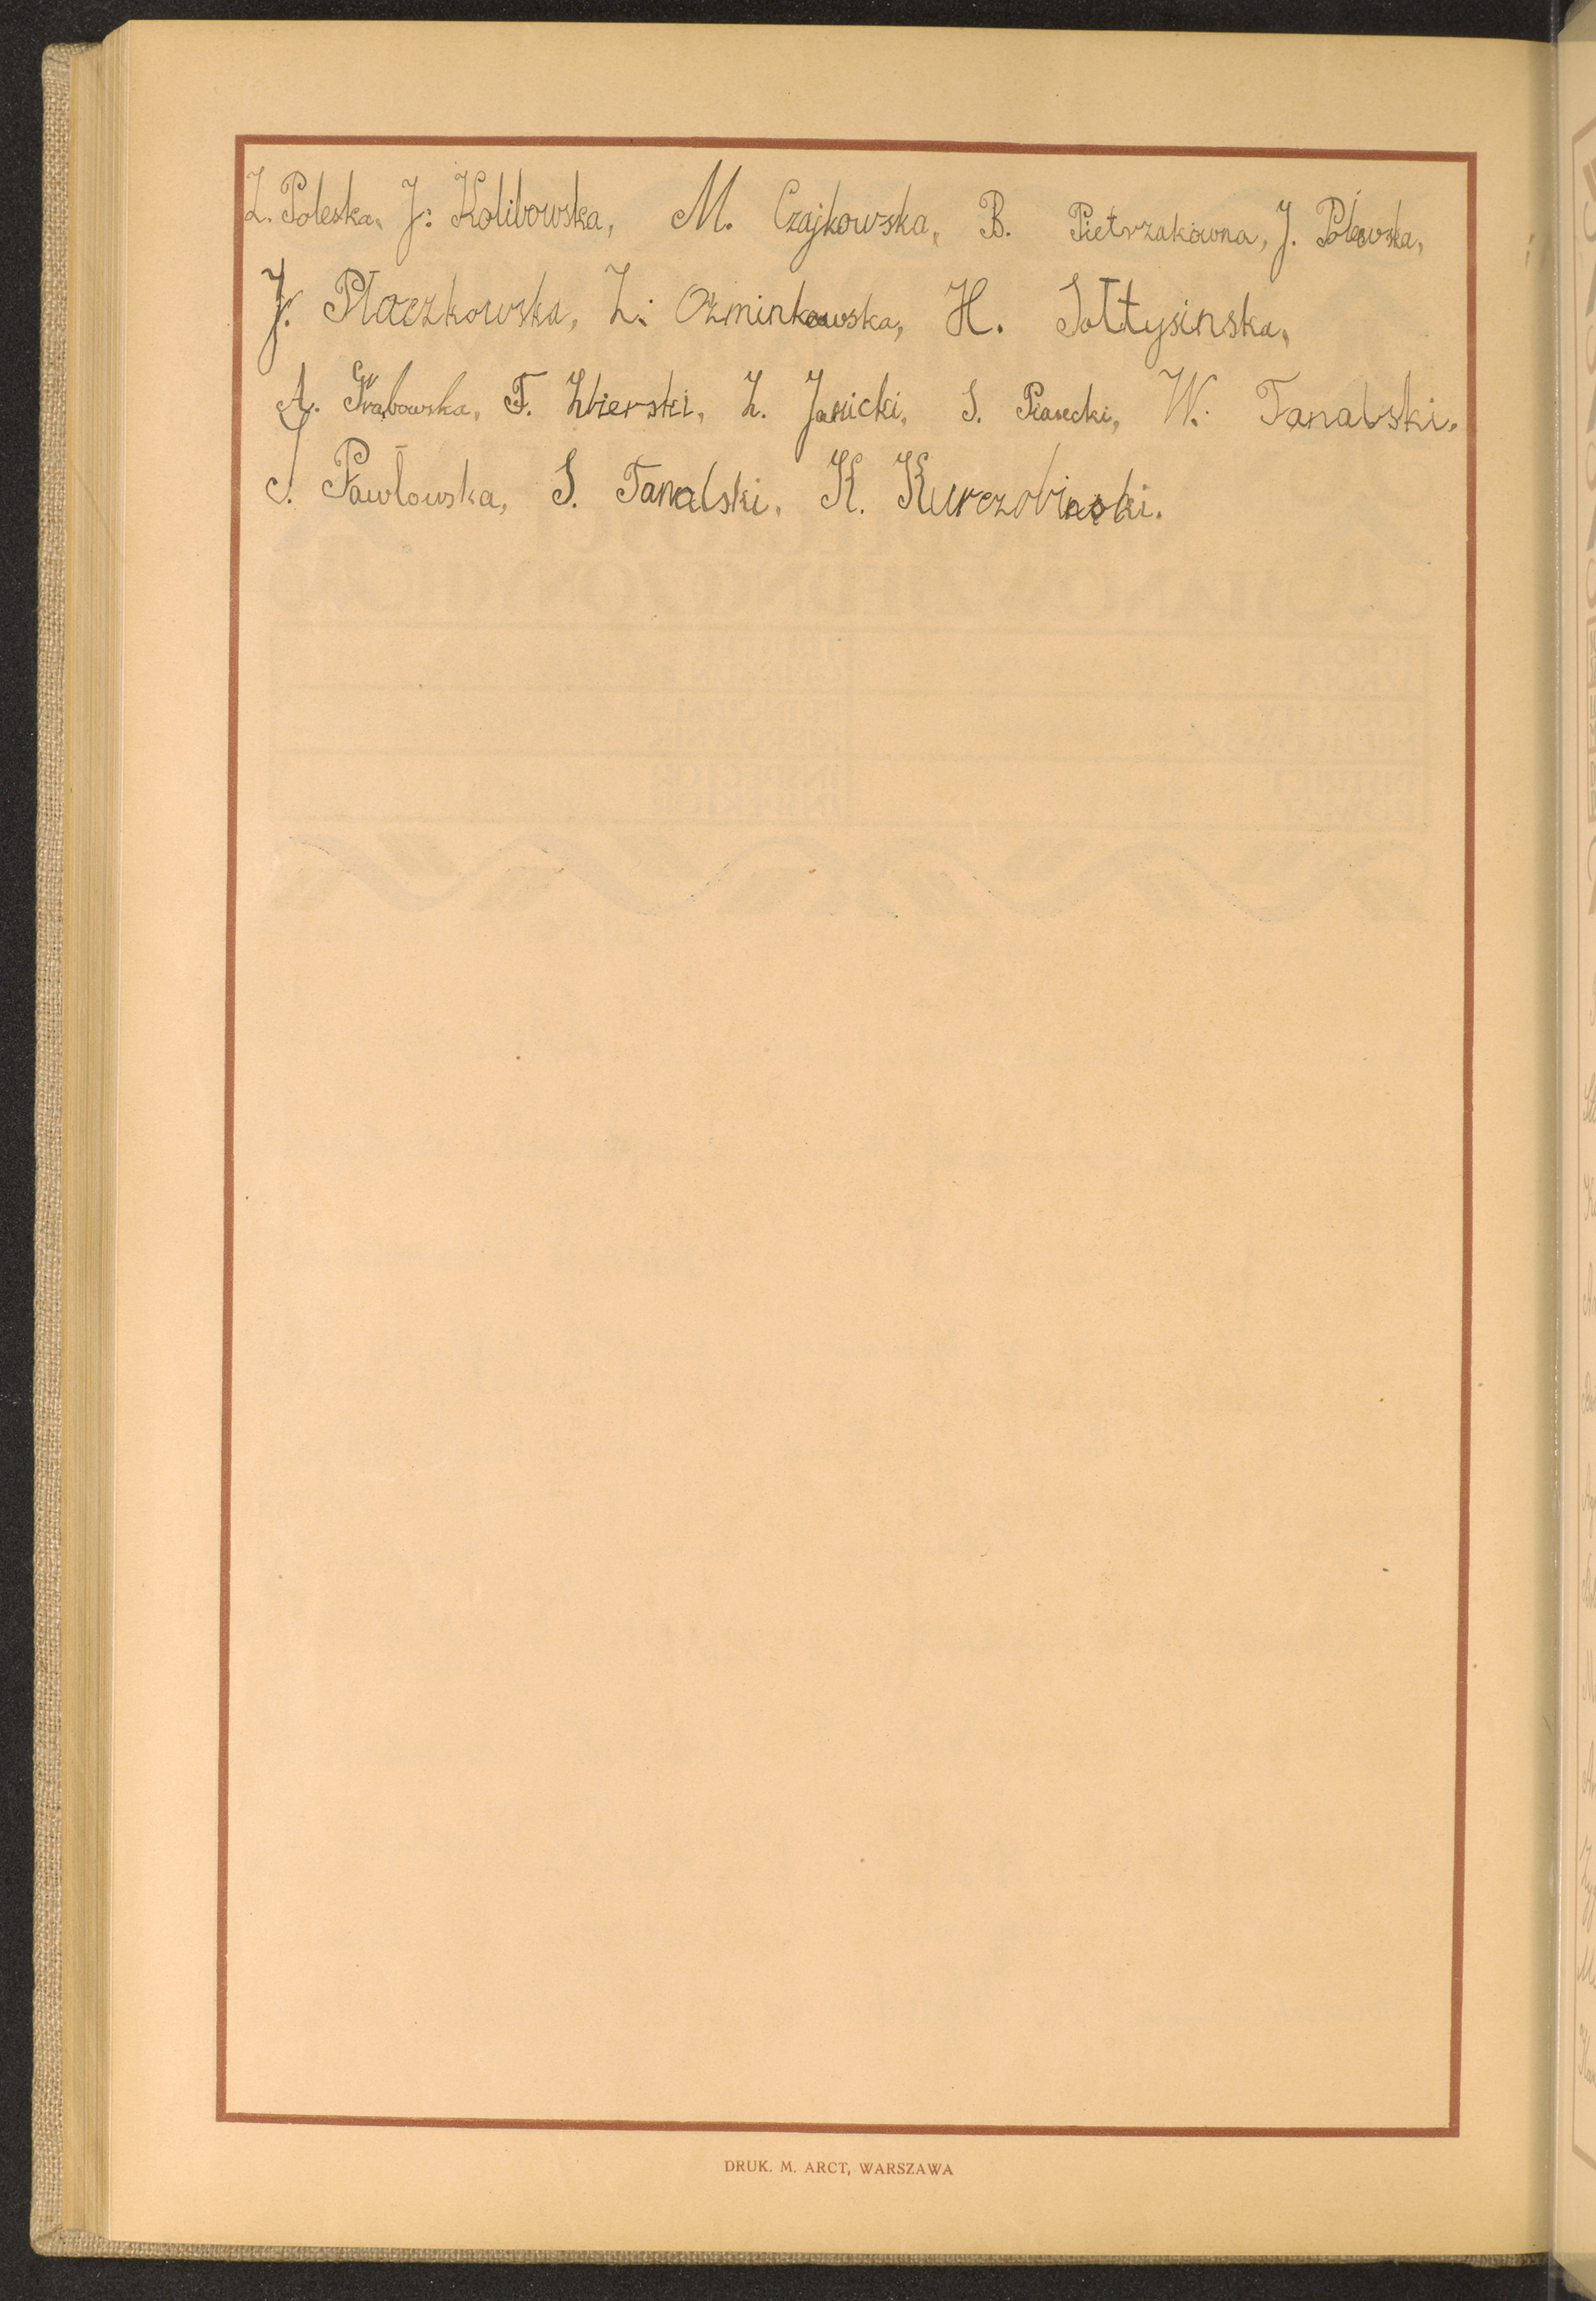 Z. Poleska, J. Kolibowska, M. Czajkowska, B. Pietrzakówna, J. Polewska,
J. Płaczkowska, Z. Oźminkowska, H. Sołtysinska,
A. Grabowska, F. Zbierski, Z. Janicki, S. Piasecki, W. Tanalski.
S. Pawłowska, S. Tanalski, K. Kurczobinski.
DRUK. M. ARCT, WARSZAWA